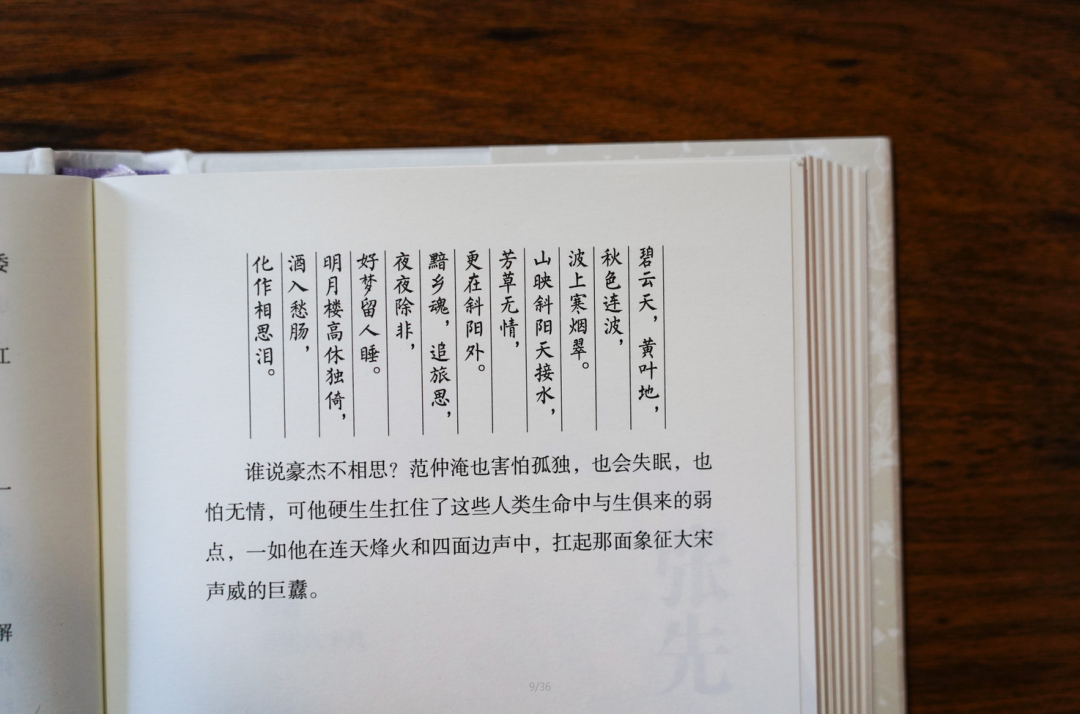 碧云天，黄叶地，
秋色连波，
波上寒烟翠。
山映斜阳天接水，
芳草无情，
更在斜阳外。
黯乡魂，追旅思，
夜夜除非，
好梦留人睡。
明月楼高休独倚，
酒入愁肠，
化作相思泪。
谁说豪杰不相思？范仲淹也害怕孤独，也会失眠，也
怕无情，可他硬生生扛住了这些人类生命中与生俱来的弱
点，一如他在连天烽火和四面边声中，扛起那面象征大宋
声威的巨纛。
江
一
解
张先
9/36